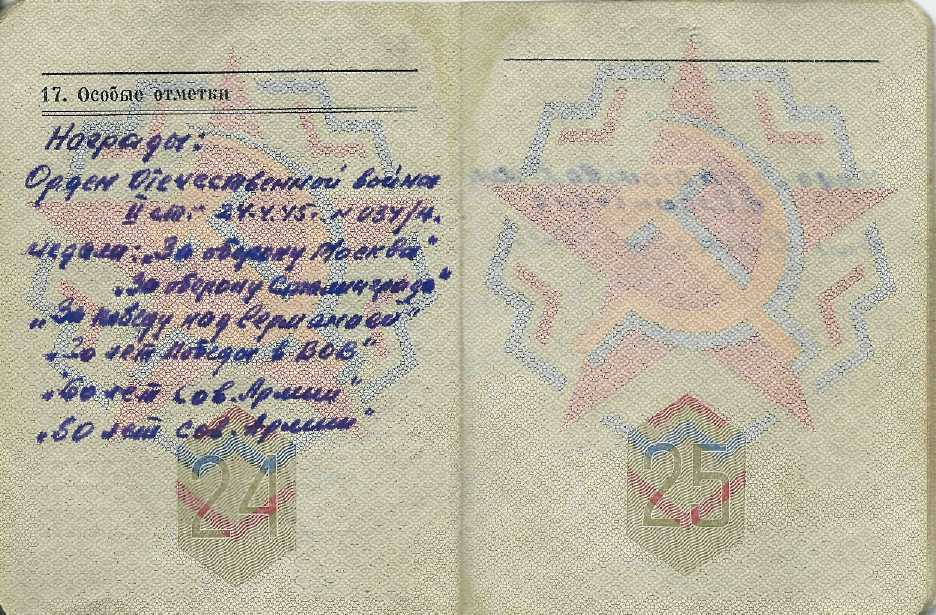 17. Особые отметки
Награды:
Орден Отечественной войны
II ст.
медали: „За оборону Москвы“
„За оборону Сталинграда“
„За победу над Германией“
„30 лет Победы в ВОВ“
„50 лет Сов. Армии“
„60 лет Сов. Армии“
24
25